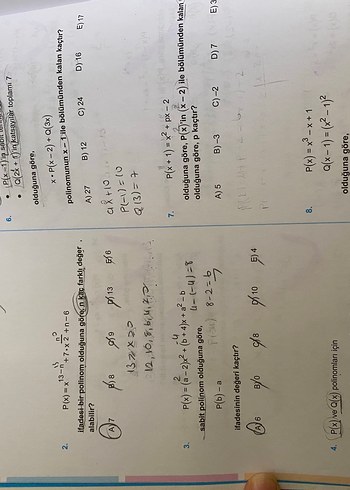 2. P(x) = x^(13−n) + 7·x^(n/2) + n − 6
ifadesi bir polinom olduğuna göre, n kaç farklı değer alabilir?
A) 7 B) 8 C) 9 D) 13 E) 6
12, 10, 8, 6, 4, 2, 0
3. P(x) = (a − 2)x² + (b + 4)x + a² − b
sabit polinom olduğuna göre,
4−(−4)=8
P(b) − a
8−2=6
ifadesinin değeri kaçtır?
A) 6 B) 0 C) 8 D) 10 E) 4
4. P(x) ve Q(x) polinomları için
6. • P(x − 1)'in sabit
• Q(2x + 1)'in katsayılar toplamı 7
olduğuna göre,
x • P(x − 2) + Q(3x)
polinomunun x − 1 ile bölümünden kalan kaçtır?
A) 27 B) 12 C) 24 D) 16 E) 17
P(−1) = 10
Q(3) = 7
7. P(x + 1) = x² + px − 2
olduğuna göre, P(x)'in (x − 2) ile bölümünden kalan
olduğuna göre, p kaçtır?
A) 5 B) −3 C) −2 D) 7 E) 3
8. P(x) = x³ − x + 1
Q(x − 1) = (x² − 1)²
olduğuna göre,